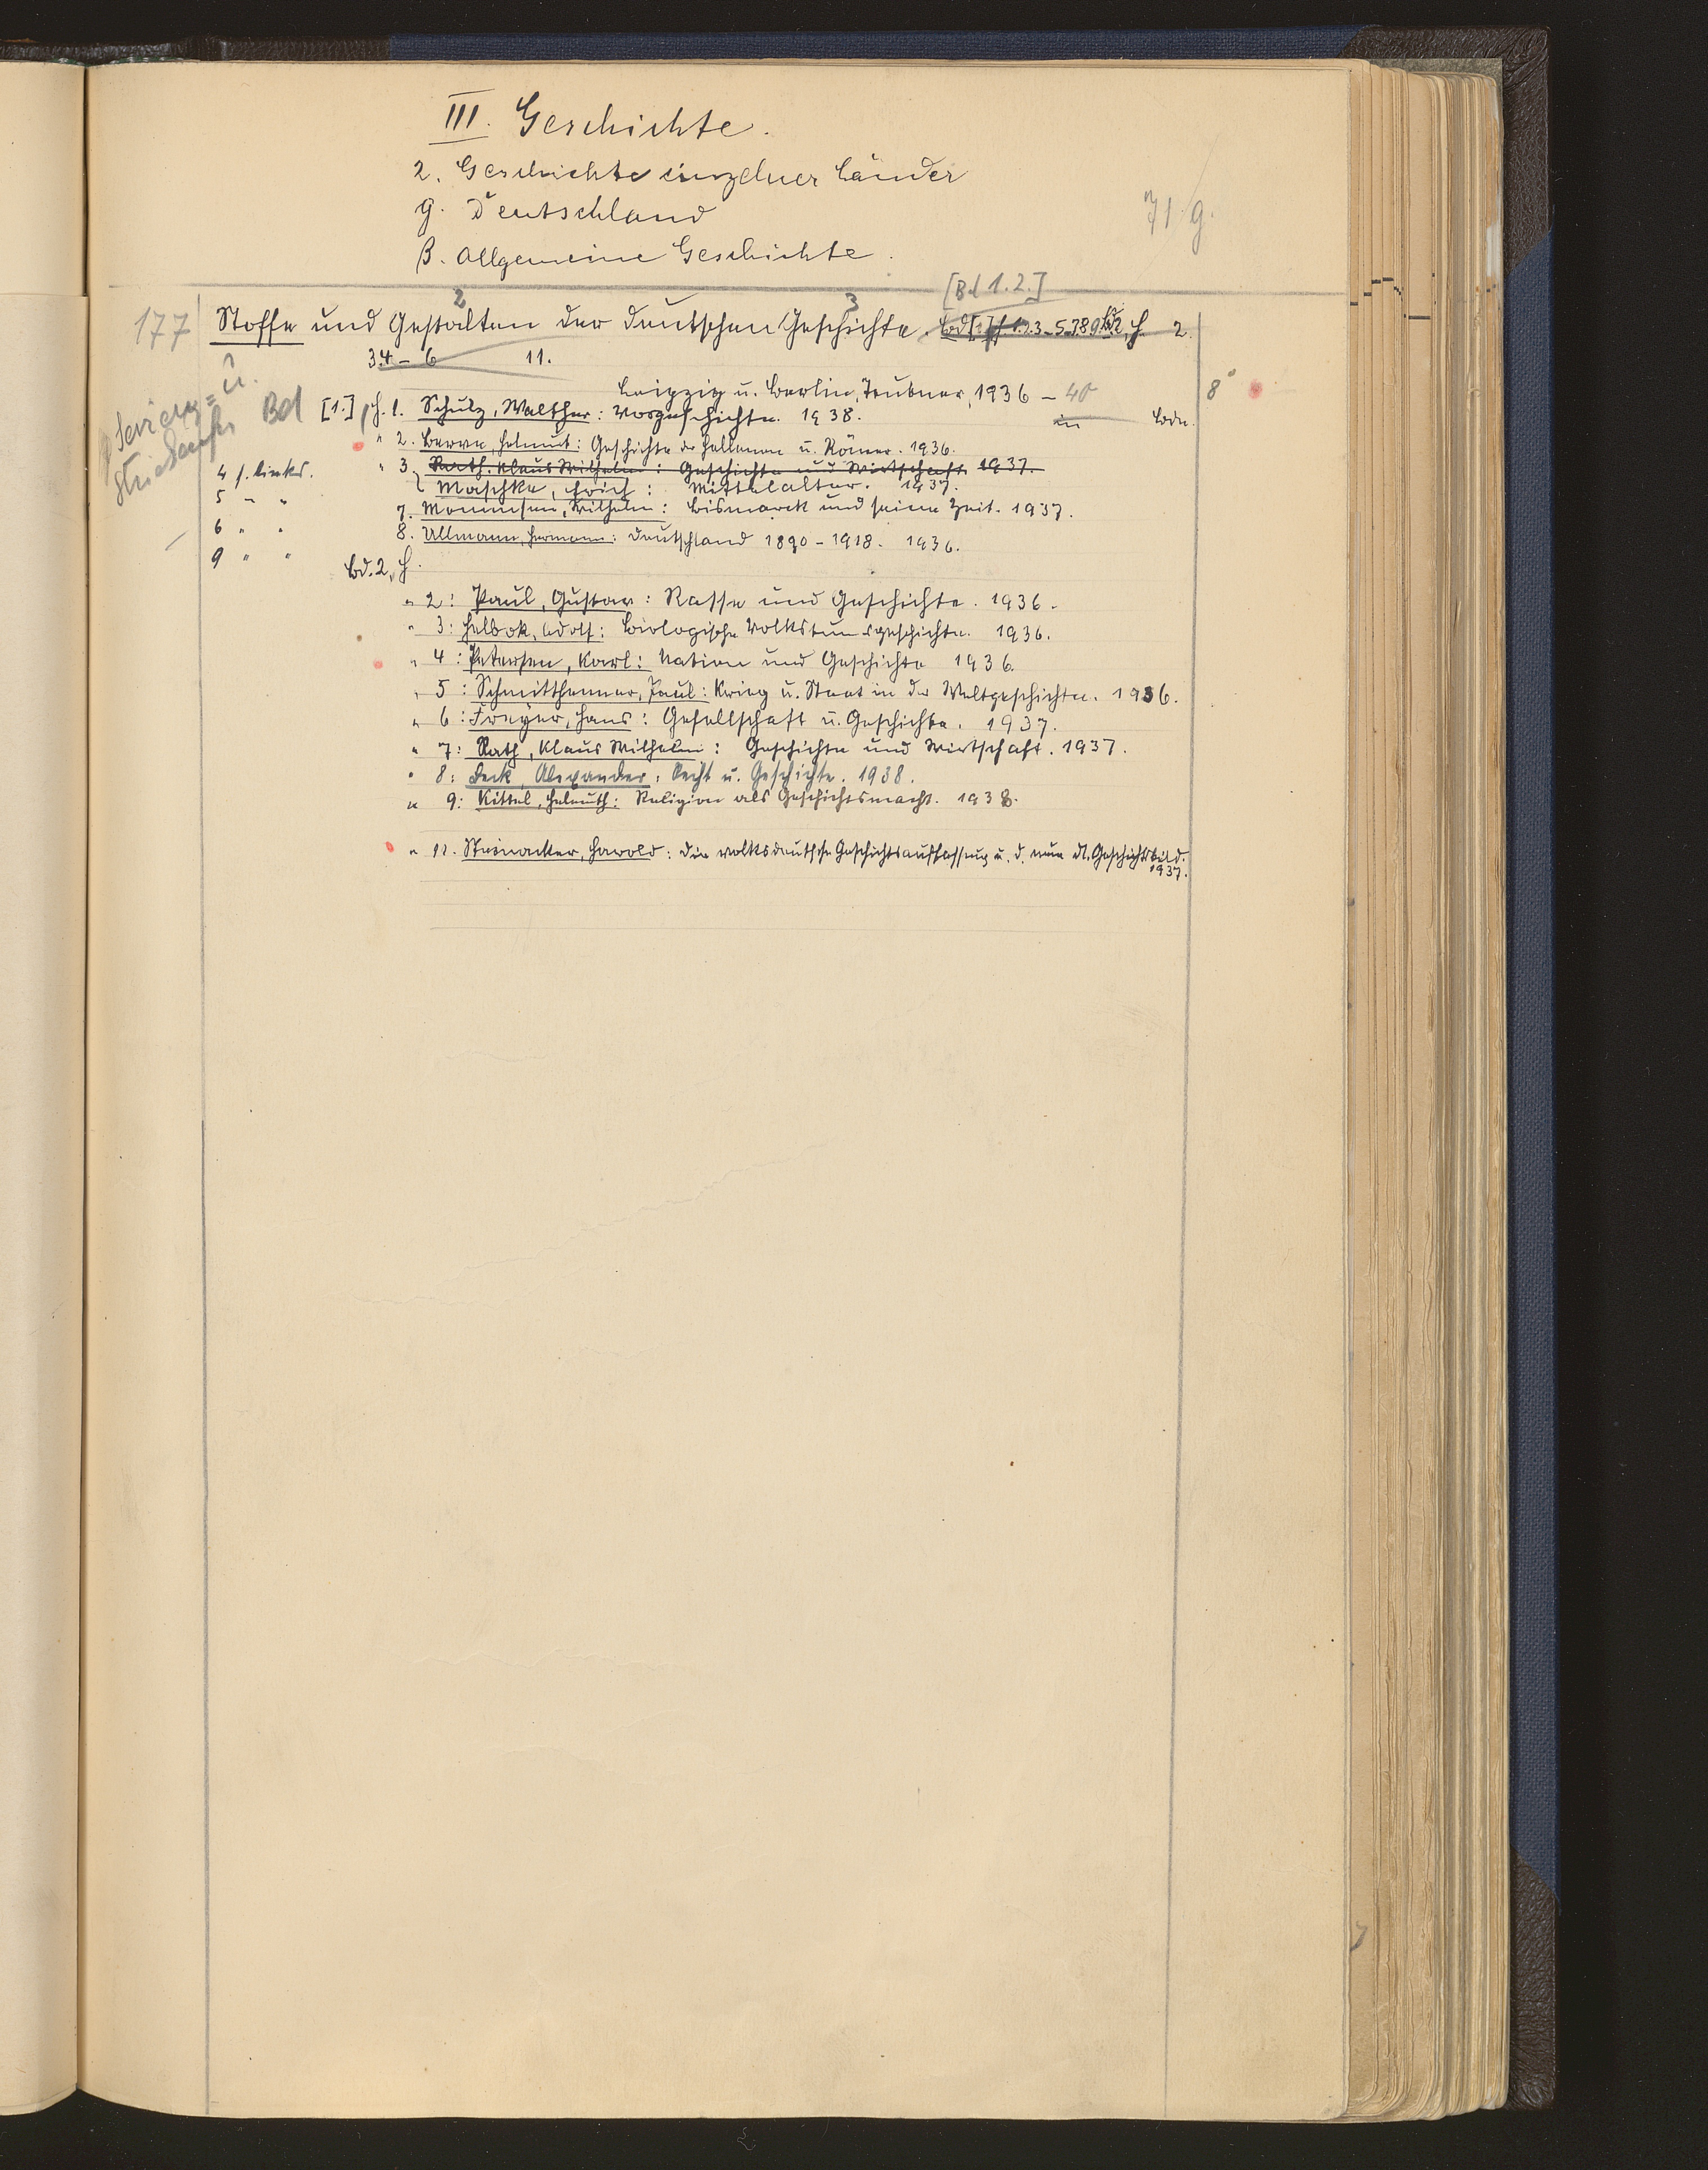 III. Geschichte.
2. Geschichte einzelner Länder
g. Deutschland
71 g.
β. Allgemeine Geschichte.
[Bd 1. 2.]
2 3
177 Stoffe und Gestalten der deutschen Geschichte. Bd [1] H. 1.2.3-5.7.8.9. Bd. 2, H. 2.
3.4-6 11.
Leipzig u. Berlin, Teubner, 1936-40 8°
Serien= u.
in Bde.
Bd [1.] H. 1. Schulz, Walther: Vorgeschichte. 1938.
" 2. Berve, Helmut: Geschichte der Hellenen u. Römer. 1936.
4 s. links. " 3. Rath, Klaus Wilhelm: Geschichte und Wirtschaft. 1937.
5 " " Maschke, Erich: Mittelalter. 1937.
7. Mommsen, Wilhelm: Bismarck und seine Zeit. 1937.
6 " " 8. Ullmann, Hermann: Deutschland 1890-1918. 1936.
9 " " Bd. 2, H.
" 2: Paul, Gustav: Rasse und Geschichte. 1936.
" 3: Helbok, Adolf: Biologische Volkstumsgeschichte. 1936.
" 4: Petersen, Karl: Nation und Geschichte 1936.
" 5: Schmitthenner, Paul: Krieg u. Staat in der Weltgeschichte. 1936.
" 6: Freyer, Hans: Gesellschaft u. Geschichte. 1937.
" 7: Rath, Klaus Wilhelm: Geschichte und Wirtschaft. 1937.
" 8: Beck, Alexander: Recht u. Geschichte. 1938.
" 9: Kittel, Helmuth: Religion als Geschichtsmacht. 1938.
" 11. Steinacker, Harold: Die volksdeutsche Geschichtsauffassung u. d. neue dt. Geschichtsbild.
1937.